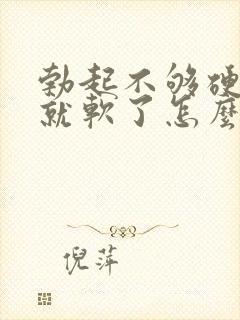 勃起不够硬
就軟了怎麼
倪萍